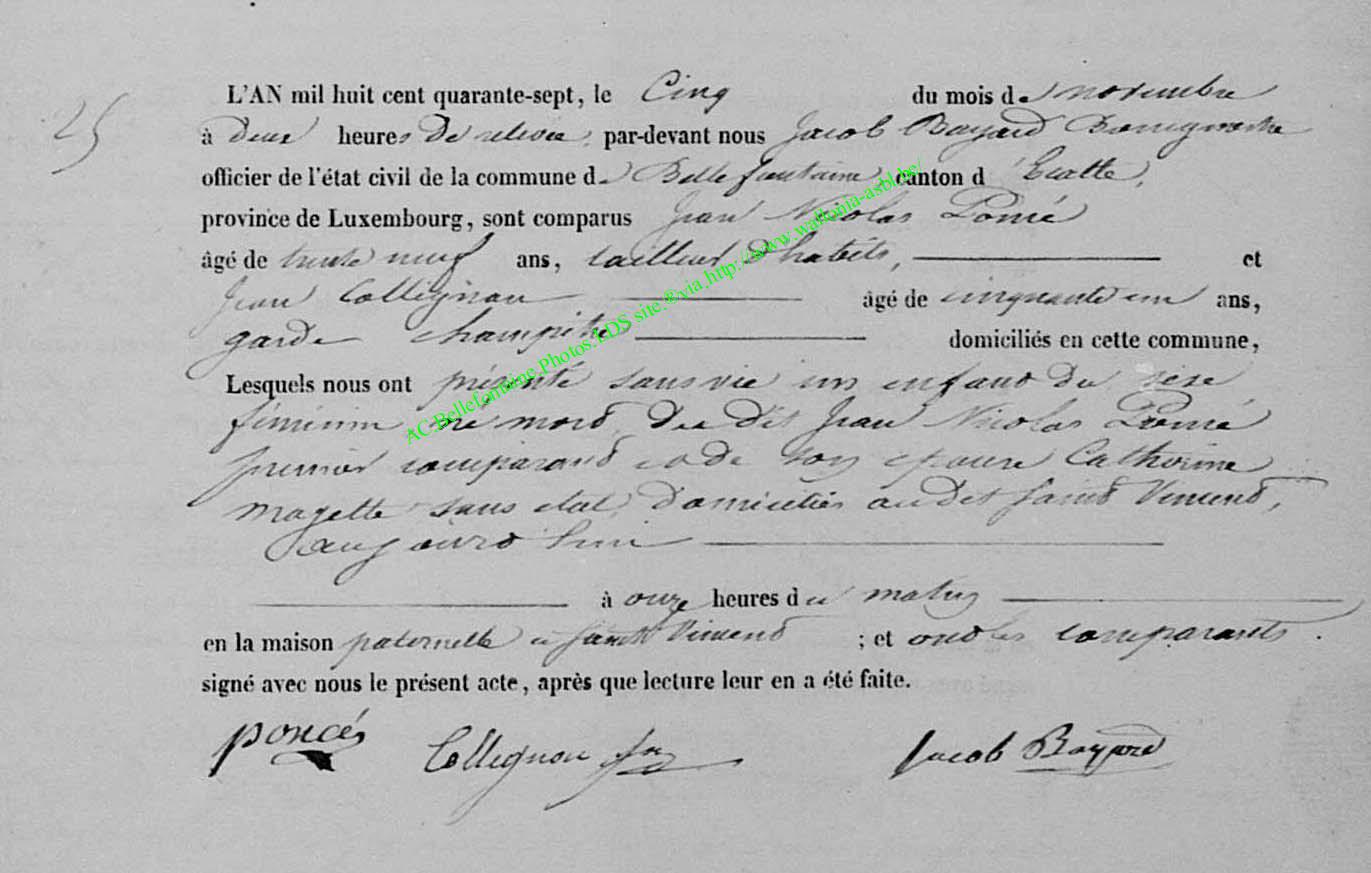 25
L'AN mil huit cent quarante-sept, le Cinq du mois de novembre
à deux heures de relevée, par-devant nous Jacob Bayard Bourgmestre
officier de l'état civil de la commune de Bellefontaine, canton d'Etalle,
province de Luxembourg, sont comparus Jean Nicolas Poncé
âgé de trente neuf ans, tailleur d'habits, et
Jean Collignon âgé de cinquante un ans,
garde champêtre domiciliés en cette commune,
Lesquels nous ont présenté sans vie un enfant du sexe
féminin né mort, du dit Jean Nicolas Poncé
premier comparant et de son épouse Catherine
magette sans état, domiciliés au dit saint Vincent,
aujourd'hui
à onze heures du matin
en la maison paternelle à saint Vincent ; et ont les comparants
signé avec nous le présent acte, après que lecture leur en a été faite.
poncés Collignon Jn Jacob Bayard
AC.Bellefontaine.Photos.LDS site.®via.http://www.wallonia-asbl.be/